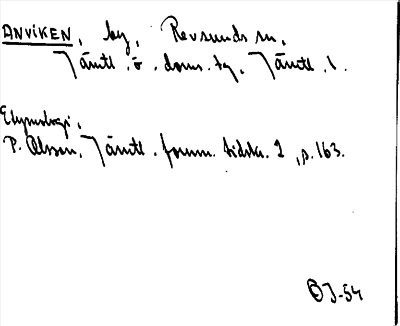 ANVIKEN, by, Revsunds sn,
Jämtl. ö. doms. tg, Jämtl. l.
Etymologi,
P. Olsson, Jämtl. fornm. tidskr. 1, p. 163.
OJ-54